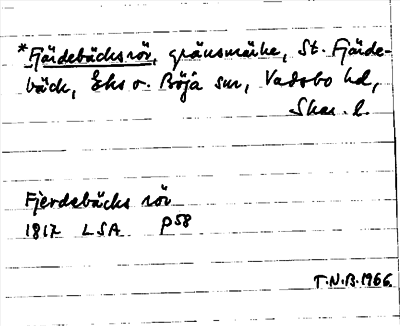 *Fjärdebäcksrör, gränsmärke, St. Fjärde-
bäck, Eks o. Böja snr, Vadsbo hd,
Skar. l.
Fjerdebäcks rör
1817 LSA P58
T.N.B.1966.